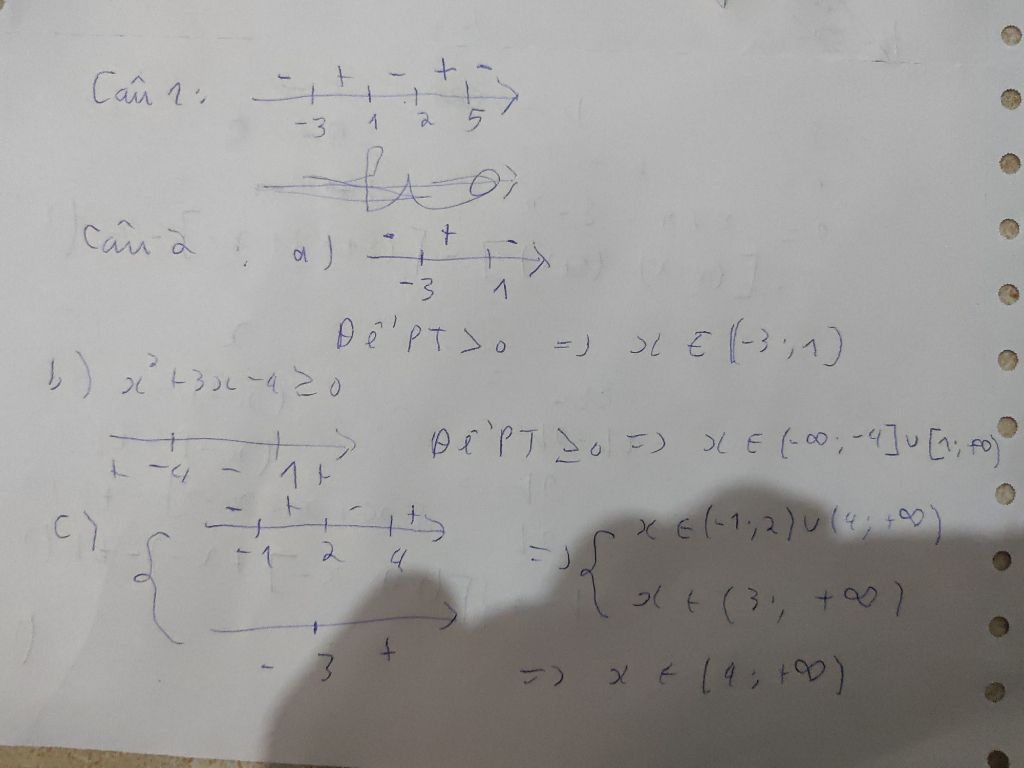 Câu 1:
- + - + -
-3 1 2 5
Câu 2 : a)
- + -
-3 1
Để PT > 0 => x ∈ (-3; 1)
b) x² + 3x - 4 ≥ 0
+ -4 - 1 +
Để PT ≥ 0 => x ∈ (-∞; -4] ∪ [1; +∞)
c) {
- + - +
-1 2 4
=> { x ∈ (-1; 2) ∪ (4; +∞)
- 3 +
x ∈ (3; +∞)
=> x ∈ (4; +∞)